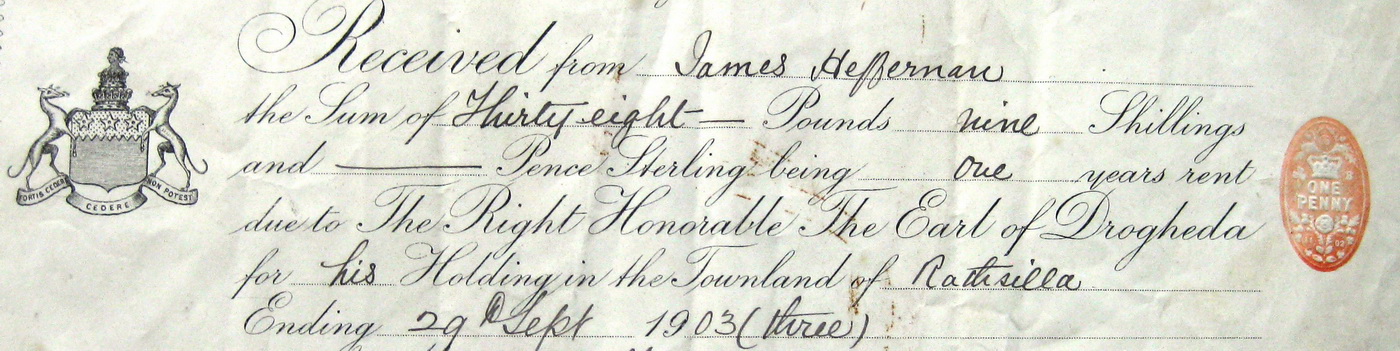 Received from James Heffernan
the Sum of Thirty eight — Pounds nine Shillings
and — Pence Sterling being one years rent
due to The Right Honorable The Earl of Drogheda
for his Holding in the Townland of Rathsilla
Ending 29th Sept 1903 (three)
FORTIS CEDERE
CEDERE
NON POTEST
ONE
PENNY